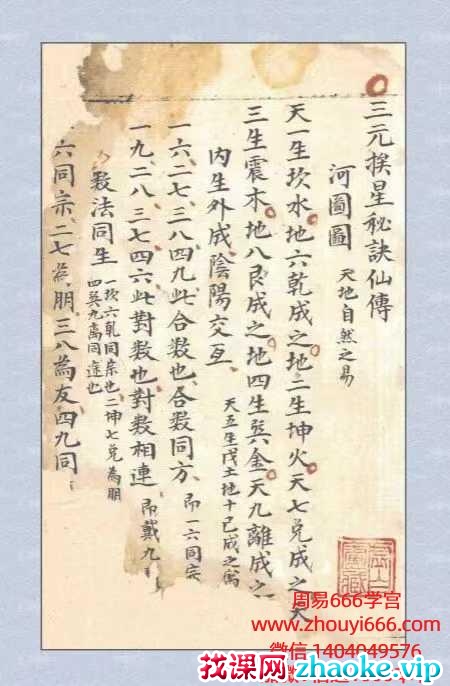 三元挨星秘訣仙傳
河圖圖 天地自然之易
天一生坎水地六乾成之地二生坤火天七兌成之天
三生震木地八艮成之地四生巽金天九離成之
内生外成陰陽交互 天五生戊土地十己成之寓
一六二七三八四九此合数也合数同方 即一六同宗
一九二八三七四六此對数也對数相連 即戴九
数法同生 一坎六乾同宗也二坤七兌為朋
四巽九離同途也
六同宗二七為朋三八為友四九同
虛白廬藏
周易666学宫
www.zhouyi666.com
微信1404049576
找课网zhaoke.vip